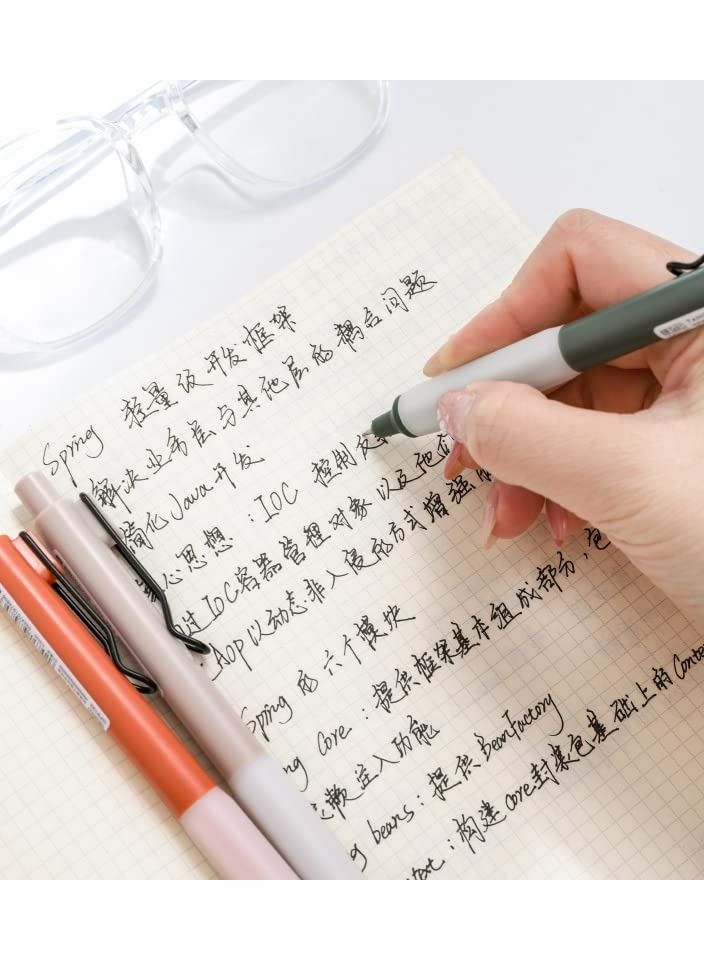 Spring 轻量级开发框架
解决业务层与其他层的耦合问题
简化Java开发
核心思想:IOC 控制反
通过IOC容器管理对象以及他们
AOP以动态非入侵的方式增强
Spring的六个模块
Spring Core:提供框架基本组成部分,包
依赖注入功能
Spring beans:提供BeanFactory
context:构建core封装包基础上的Conte